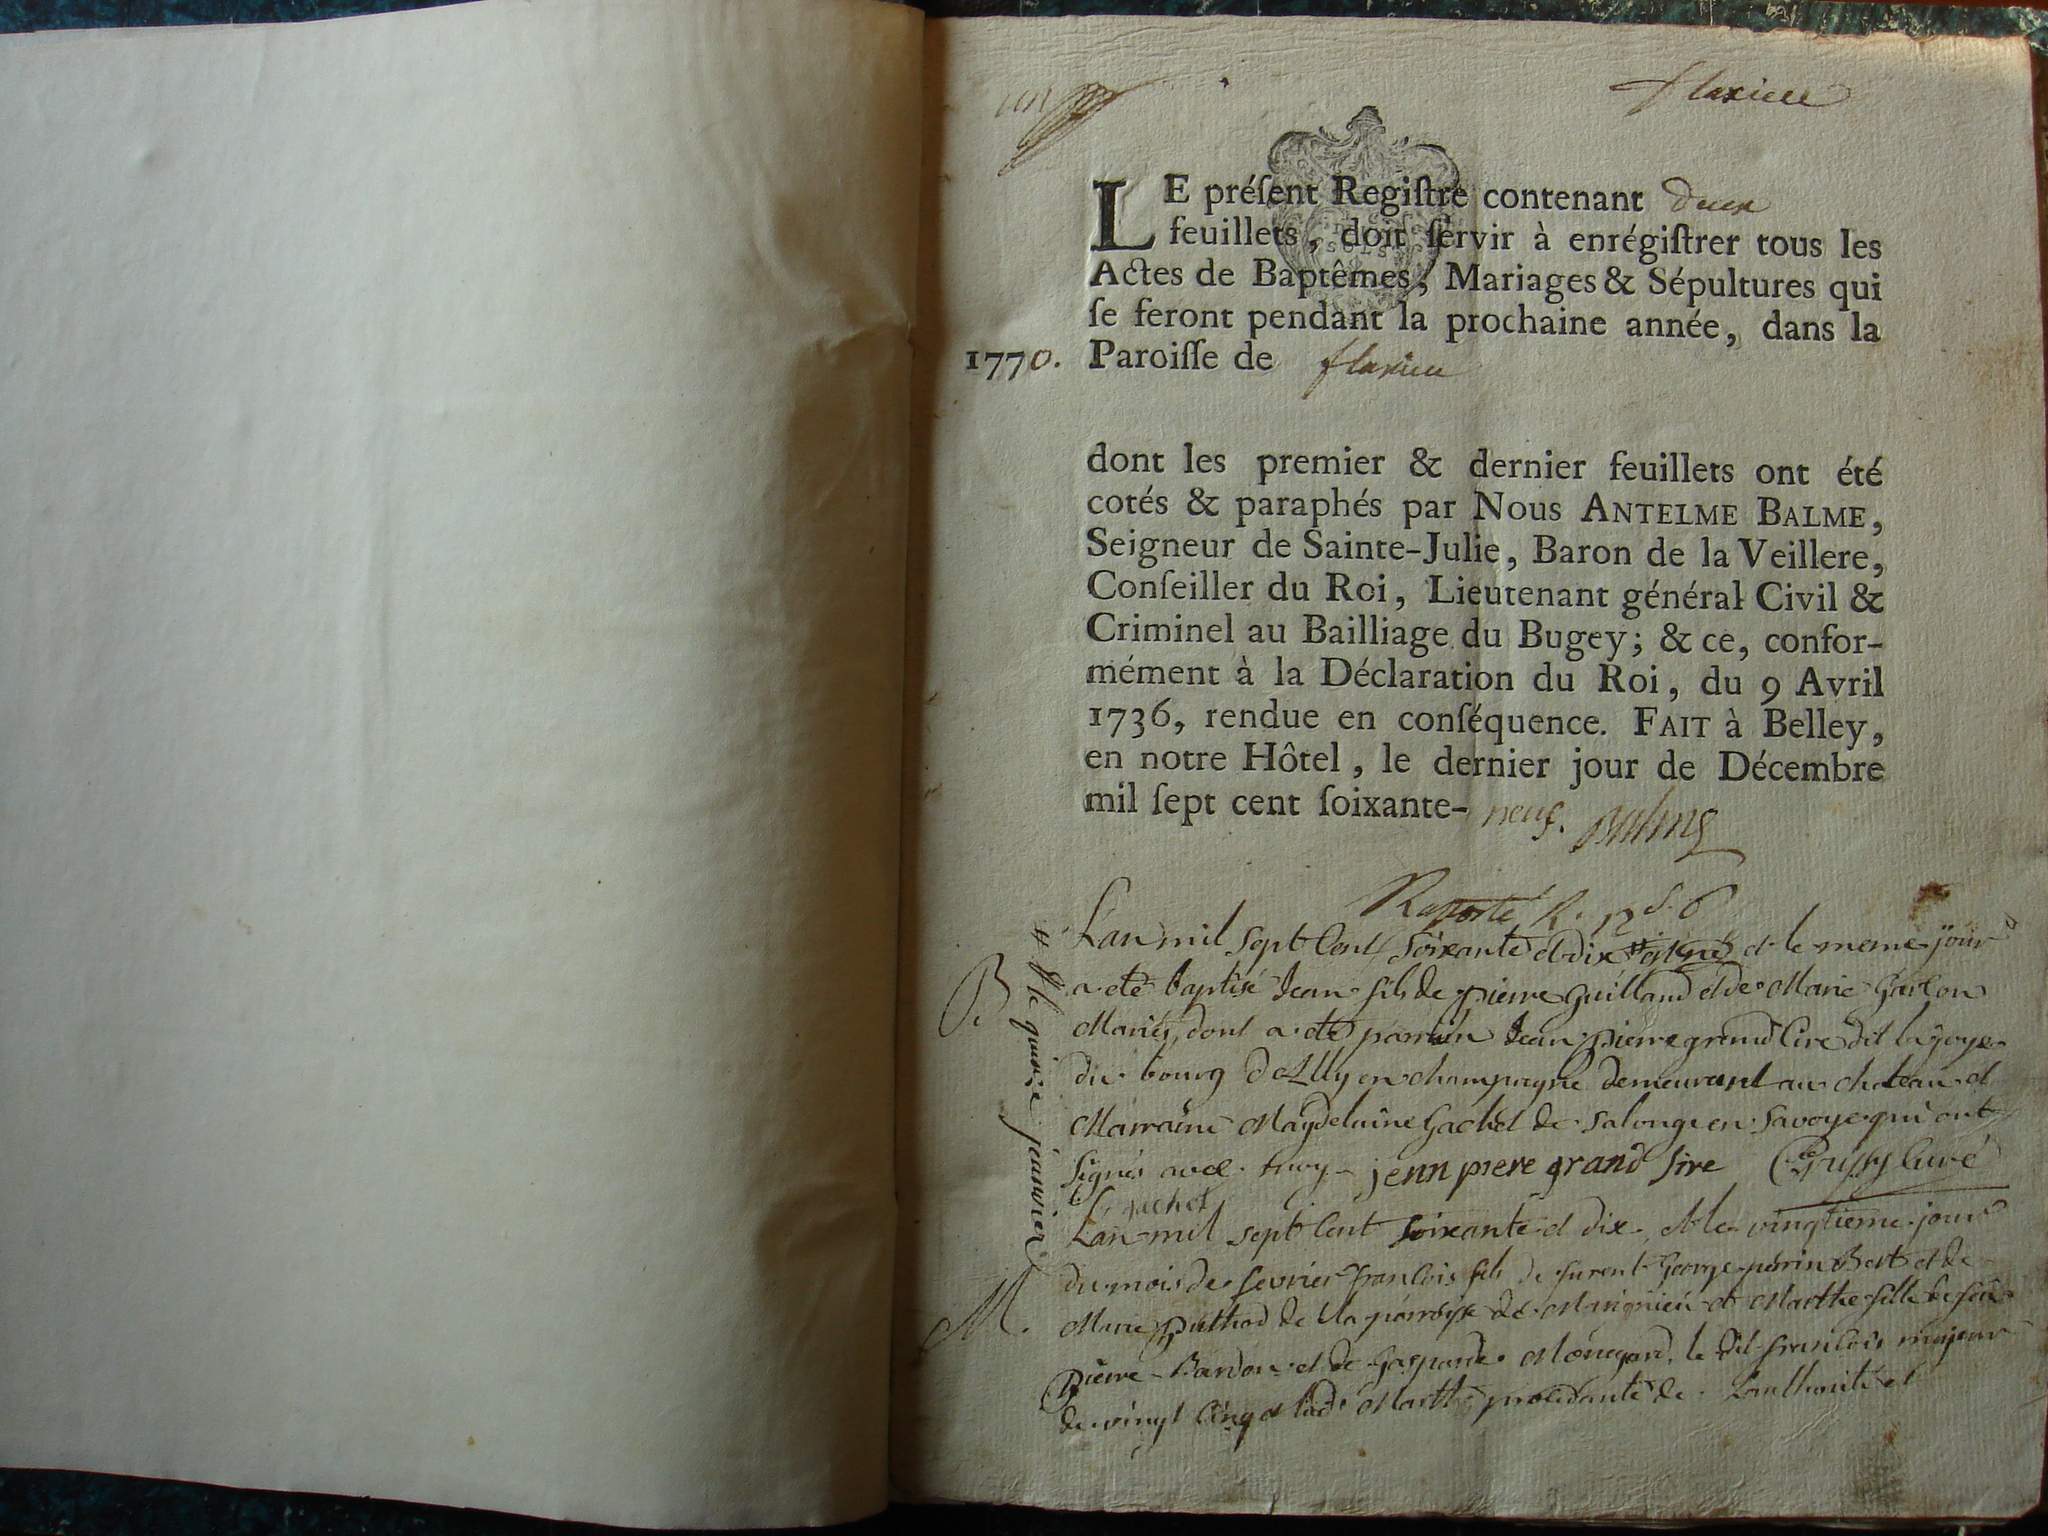 flaxieu
LE préſent Regiſtre contenant deux
feuillets, doit ſervir à enrégiſtrer tous les
Actes de Baptêmes, Mariages & Sépultures qui
ſe feront pendant la prochaine année, dans la
1770. Paroiſſe de flaxieu
dont les premier & dernier feuillets ont été
cotés & paraphés par Nous ANTELME BALME,
Seigneur de Sainte-Julie, Baron de la Veillere,
Conſeiller du Roi, Lieutenant général Civil &
Criminel au Bailliage du Bugey; & ce, confor-
mément à la Déclaration du Roi, du 9 Avril
1736, rendue en conſéquence. FAIT à Belley,
en notre Hôtel, le dernier jour de Décembre
mil ſept cent ſoixante- neuf. Balme
L'an mil sept cent soixante et dix et le meme jour
B a eté baptisé Jean fils de pierre Guilland et de Marie
Mariés, dont a eté parrain Jean pierre grand Cire dit
du bourg en champagne demeurant au chateau et
Marraine Magdelaine Gachet de Salonge en Savoye qui ont
signés avec moy jenn piere grand sire curé
gachet
# le quinze jeanvier
L'an mil sept cent soixante et dix et le vingtieme jour
du mois de fevrier francois fils de furent George perrin Bert et de
M. Marie puthod de la parroisse de Magnieu et Marthe fille de feu
pierre Bardon et de Gasparde le dit francois majeur
de vingt cinq et lad Marthe procedante de l'authorité et